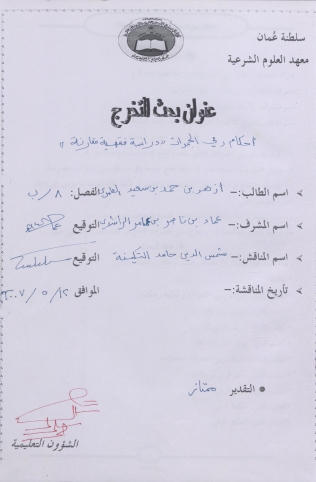 سلطنة عُمان
معهد العلوم الشرعية
عنوان بحث التخرج
أحكام رمي الجمرات «دراسة فقهية مقارنة»
اسم الطالب:- أزهر بن حمد بن سعيد الفصل: ٨/ب
اسم المشرف:- عماد بن ناصر بن عامر الراشدي التوقيع
اسم المناقش:- شمس الدين حامد التكينة التوقيع
تأريخ المناقشة:- الموافق ١٢/٥/٢٠٠٧
التقدير ممتاز
الشؤون التعليمية